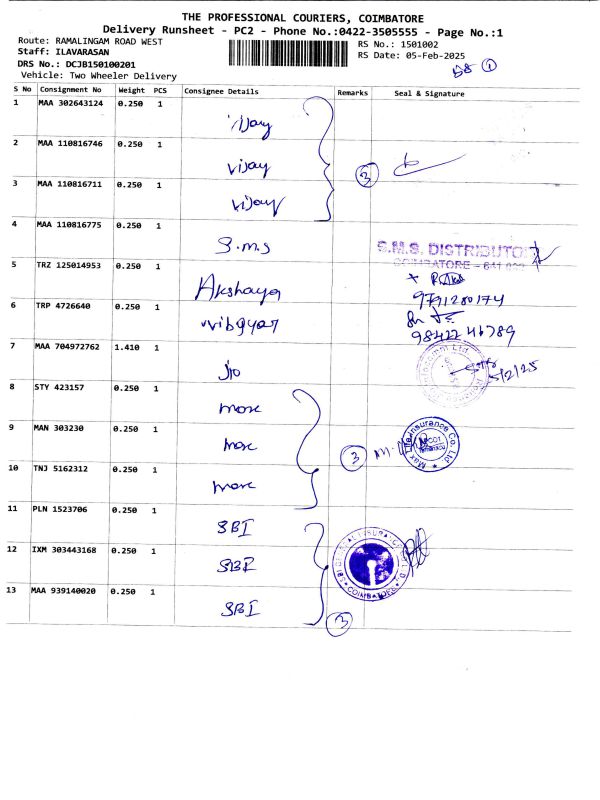 THE PROFESSIONAL COURIERS, COIMBATORE
Delivery Runsheet - PC2 - Phone No.:0422-3505555 - Page No.:1
Route: RAMALINGAM ROAD WEST
Staff: ILAVARASAN
DRS No.: DCJB150100201
Vehicle: Two Wheeler Delivery
RS No.: 1501002
RS Date: 05-Feb-2025
S No Consignment No Weight PCS Consignee Details Remarks Seal & Signature
1 MAA 302643124 0.250 1 vijay
2 MAA 110816746 0.250 1 vijay
3 MAA 110816711 0.250 1 vijay
3
4 MAA 110816775 0.250 1 S.M.S
S.M.S. DISTRIBUTO
COIMBATORE - 641
5 TRZ 125014953 0.250 1 Akshaya
9791280174
6 TRP 4726640 0.250 1 vvibgyor
7 MAA 704972762 1.410 1 Jio
5/2/25
8 STY 423157 0.250 1 max
9 MAN 303230 0.250 1 max
10 TNJ 5162312 0.250 1 max
3
Max Life Insurance Co. Ltd.
11 PLN 1523706 0.250 1 SBI
12 IXM 303443168 0.250 1 SBI
13 MAA 939140020 0.250 1 SBI
3
COIMBATORE